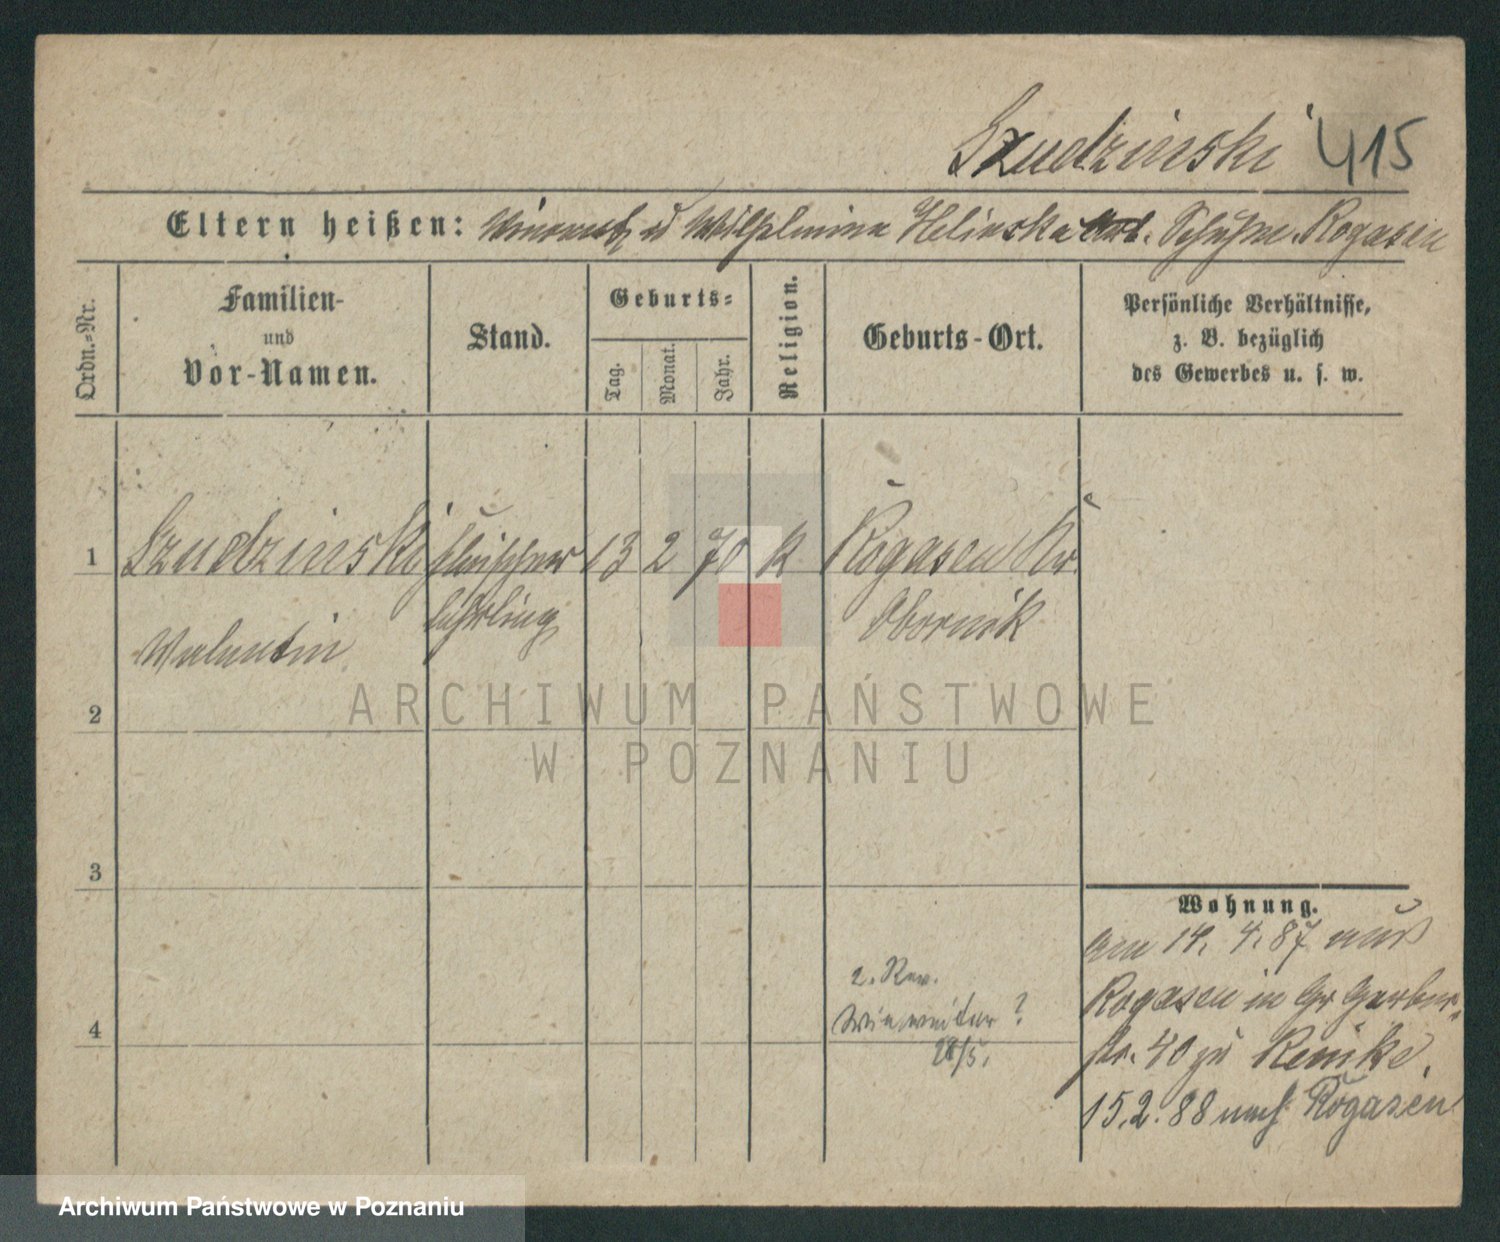 Szudzinski 415
Eltern heißen: Vincent u Wilhelmine Helinska Schuhm. Rogasen
Ordn.-Nr.
Familien-
und
Vor-Namen.
Stand.
Geburts-
Tag.
Monat.
Jahr.
Religion.
Geburts-Ort.
Persönliche Verhältnisse,
z. B. bezüglich
des Gewerbes u. s. w.
1 Szudzinski Fleischer 13 2 70 k Rogasen Kr.
lehrling Obornik
Valentin
2
ARCHIWUM PAŃSTWOWE
W POZNANIU
3
Wohnung.
Am 14. 4. 87 aus
Rogasen in Gr Gerber-
str. 40 zu Renike.
15.2.88 nach Rogasen
2. Rev.
Wie weiter?
28/5.
4
Archiwum Państwowe w Poznaniu